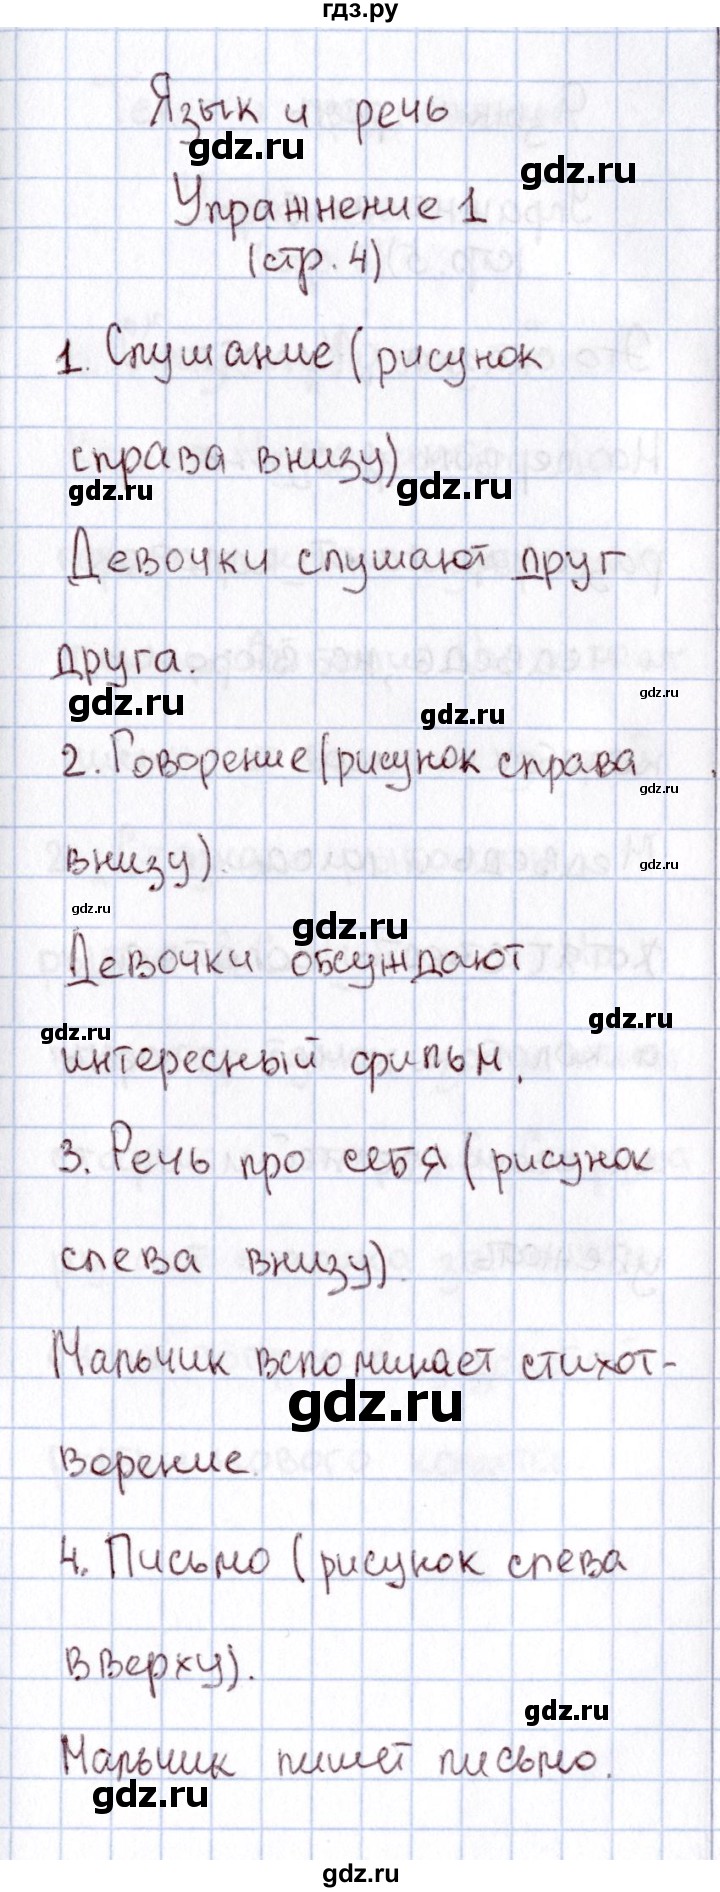 гдз.ру
Язык и речь
gdz.ru
gdz.ru
Упражнение 1
(стр. 4)
1. Слушание (рисунок
справа внизу)
gdz.ru
gdz.ru
Девочки слушают друг
друга.
gdz.ru
gdz.ru
gdz.ru
2. Говорение (рисунок справа
gdz.ru
внизу).
gdz.ru
gdz.ru
gdz.ru
Девочки обсуждают
gdz.ru
gdz.ru
интересный фильм.
3. Речь про себя (рисунок
слева внизу).
Мальчик вспоминает стихот-
gdz.ru
ворение.
4. Письмо (рисунок слева
вверху).
gdz.ru
Мальчик пишет письмо.
gdz.ru
gdz.ru